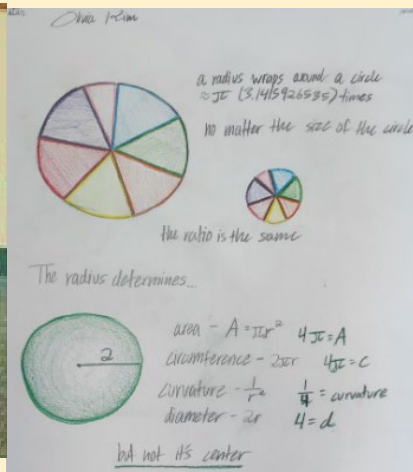 Olivia Kim
a radius wraps around a circle
≈ π (3.1415926535) times
no matter the size of the circle
the ratio is the same
The radius determines...
2
area - A = πr² 4π = A
circumference - 2πr 4π = C
curvature - 1/r² 1/4 = curvature
diameter - 2r 4 = d
but not it's center